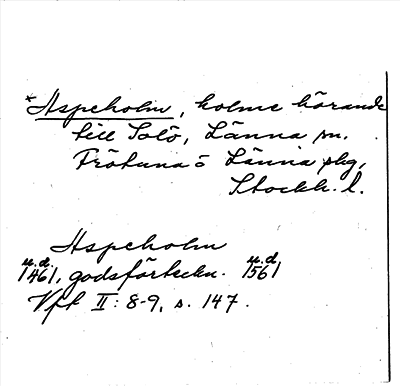 *Aspeholm, holme hörande
till Solö, Länna sn.
Frötuna o Länna skg,
Stockh. l.
Aspeholm
u.d. u.d.
1461, godsförteckn. 1561
Vfl II: 8-9, s. 147.